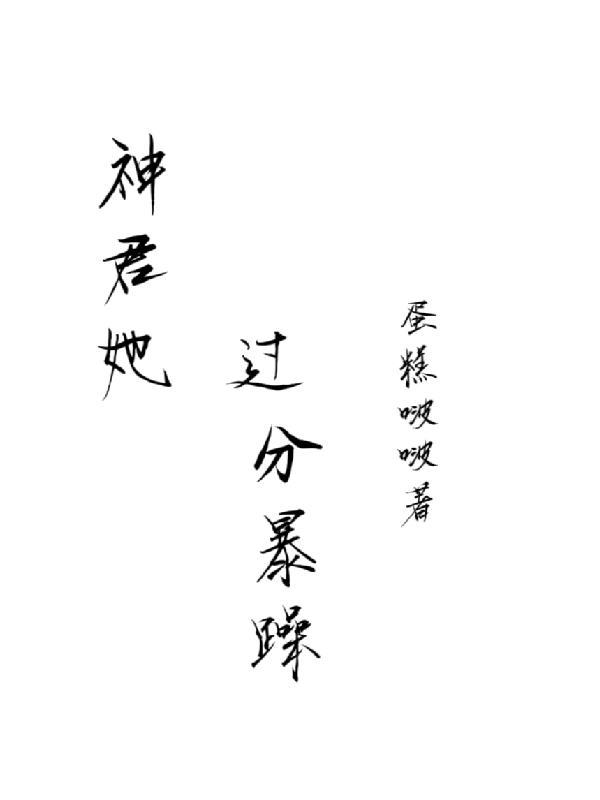 神君她
过分暴躁
蛋糕啵啵著